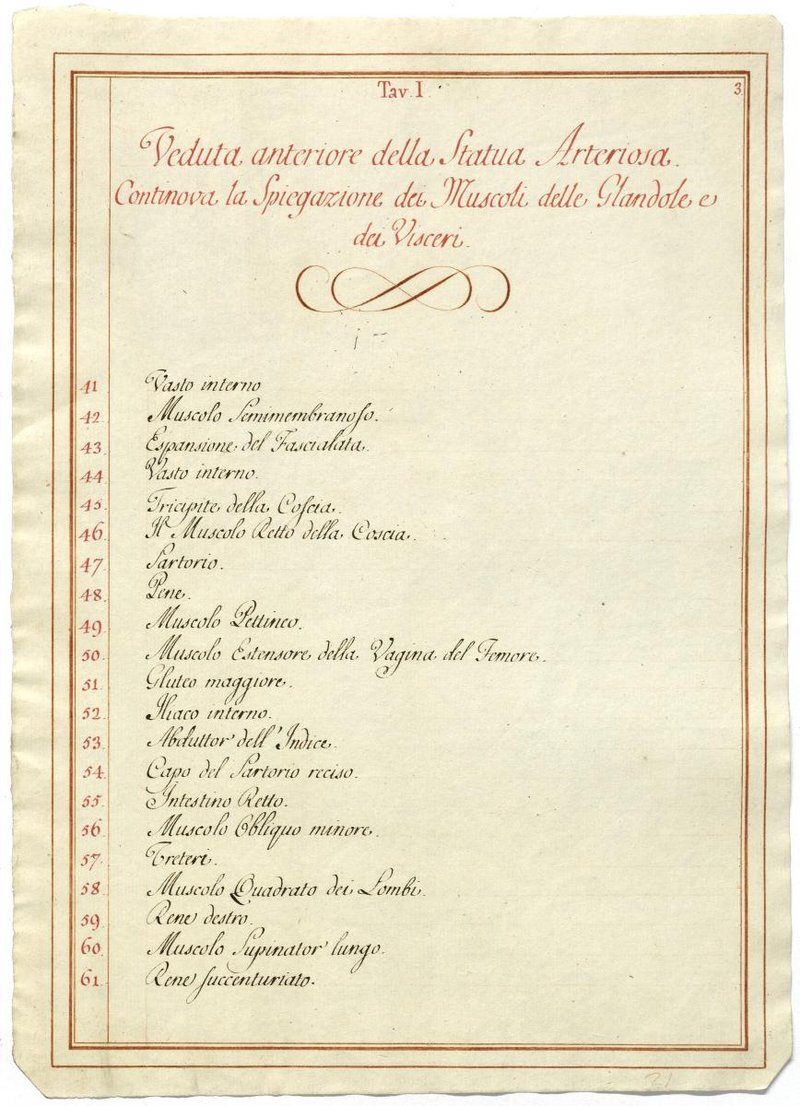 Tav. I.
3.
Veduta anteriore della Statua Arteriosa.
Continova la Spiegazione dei Muscoli delle Glandole e
dei Visceri.
41 Vasto interno
42. Muscolo Semimembranoso.
43. Espansione del Fascialata.
44. Vasto interno.
45. Tricipite della Coscia.
46. Il Muscolo Retto della Coscia.
47 Sartorio.
48. Pene.
49. Muscolo Pettineo.
50. Muscolo Estensore della Vagina del Femore.
51. Gluteo maggiore.
52. Iliaco interno.
53. Abduttor dell'Indice.
54. Capo del Sartorio reciso.
55. Intestino Retto.
56 Muscolo Obliquo minore.
57. Ureteri.
58 Muscolo Quadrato dei Lombi.
59 Rene destro.
60. Muscolo Supinator lungo.
61. Rene succenturiato.